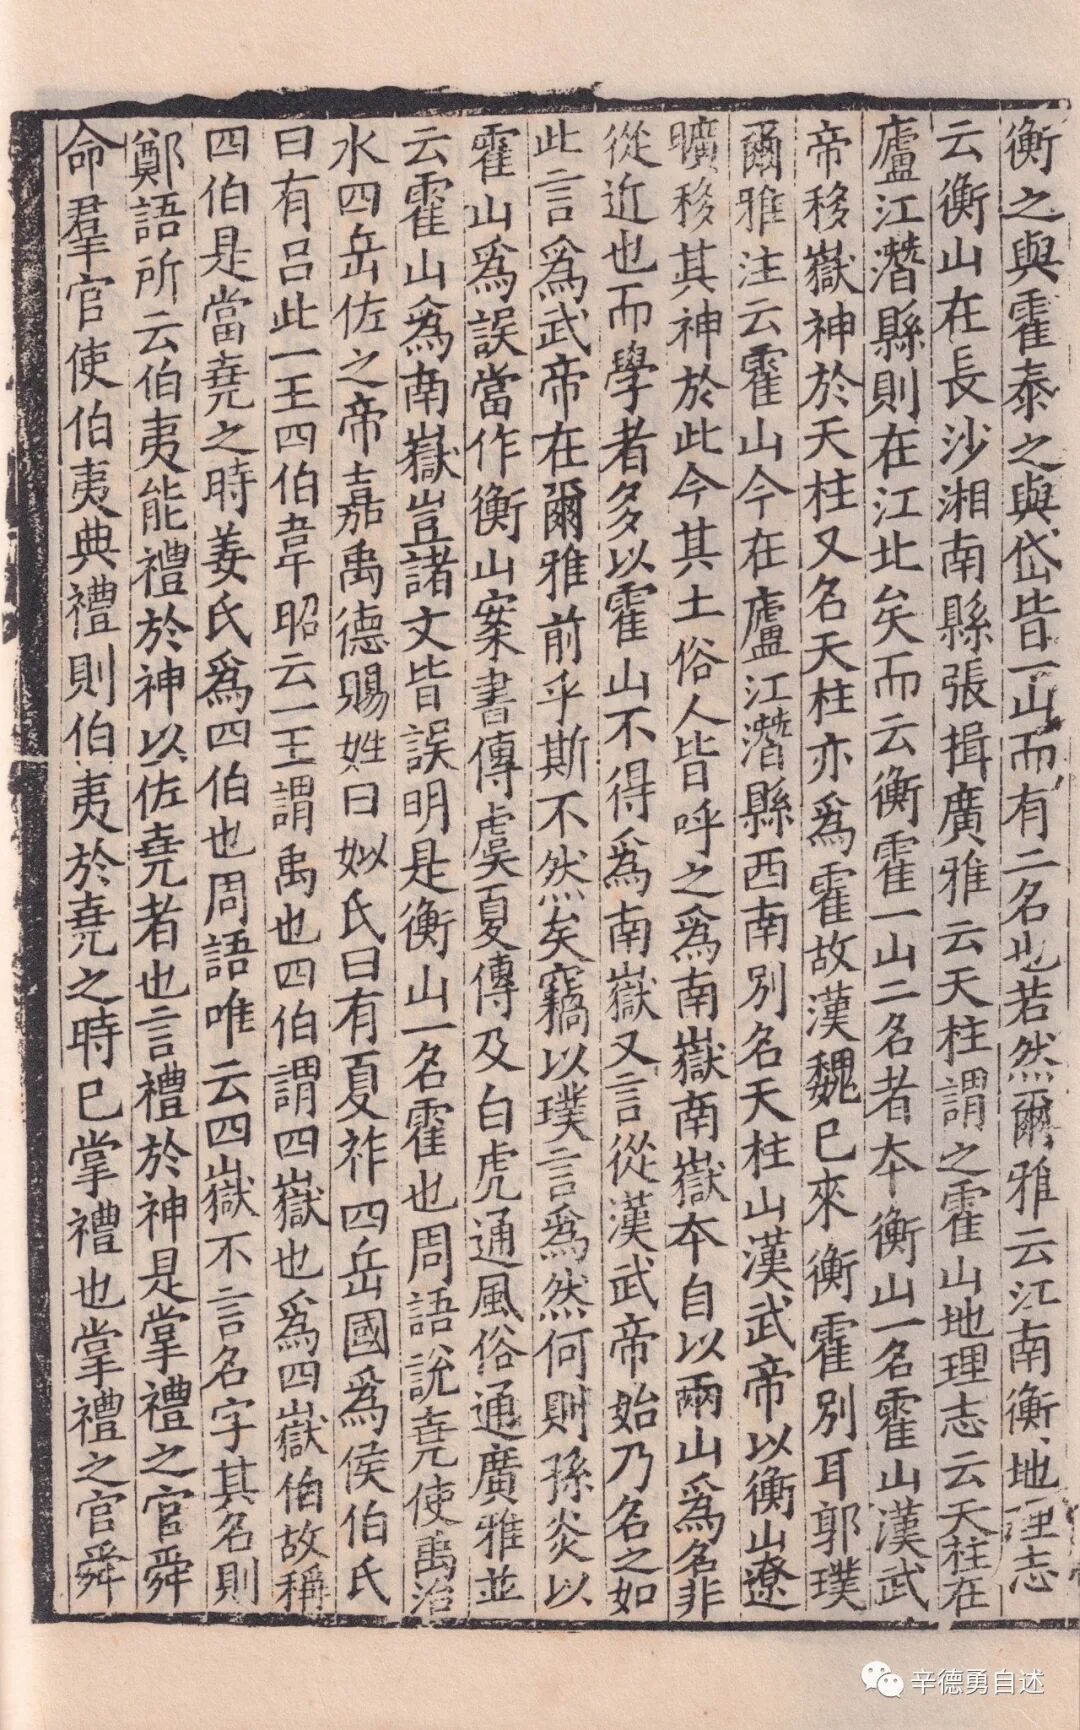 衡之與霍泰之與岱皆一山而有二名也若然爾雅云江南衡地理志
云衡山在長沙湘南縣張揖廣雅云天柱謂之霍山地理志云天柱在
廬江潛縣則在江北矣而云衡霍一山二名者本衡山一名霍山漢武
帝移嶽神於天柱又名天柱亦爲霍故漢魏已來衡霍別耳郭璞
爾雅注云霍山今在廬江潛縣西南別名天柱山漢武帝以衡山遼
曠移其神於此今其土俗人皆呼之爲南嶽南嶽本自以兩山爲名非
從近也而學者多以霍山不得爲南嶽又言從漢武帝始乃名之如
此言爲武帝在爾雅前乎斯不然矣竊以璞言爲然何則孫炎以
霍山爲誤當作衡山案書傳虞夏傳及白虎通風俗通廣雅並
云霍山爲南嶽豈諸文皆誤明是衡山一名霍也周語說堯使禹治
水四岳佐之帝嘉禹德賜姓曰姒氏曰有夏祚四岳國爲侯伯氏
曰有呂此一王四伯韋昭云一王謂禹也四伯謂四嶽也爲四嶽伯故稱
四伯是當堯之時姜氏爲四伯也周語唯云四嶽不言名字其名則
鄭語所云伯夷能禮於神以佐堯者也言禮於神是掌禮之官舜
命羣官使伯夷典禮則伯夷於堯之時已掌禮也掌禮之官舜
辛德勇自述